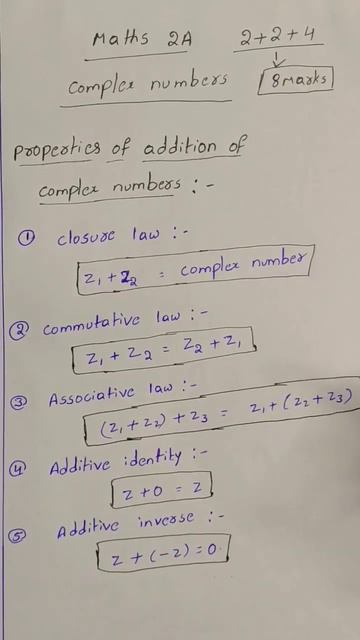 Maths 2A 2+2+4
↓
Complex numbers 8 Marks
Properties of addition of
complex numbers :-
① closure law :-
z₁ + z₂ = complex number
② commutative law :-
z₁ + z₂ = z₂ + z₁
③ Associative law :-
(z₁ + z₂) + z₃ = z₁ + (z₂ + z₃)
④ Additive identity :-
z + 0 = z
⑤ Additive inverse :-
z + (-z) = 0.